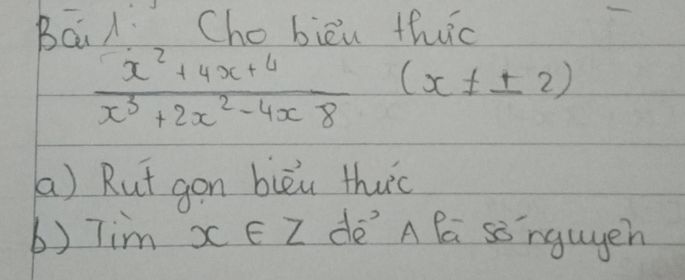 Bài 1: Cho biểu thức
x² + 4x + 4 / x³ + 2x² - 4x 8 (x ≠ ± 2)
a) Rút gọn biểu thức
b) Tìm x ∈ Z để A là số nguyên